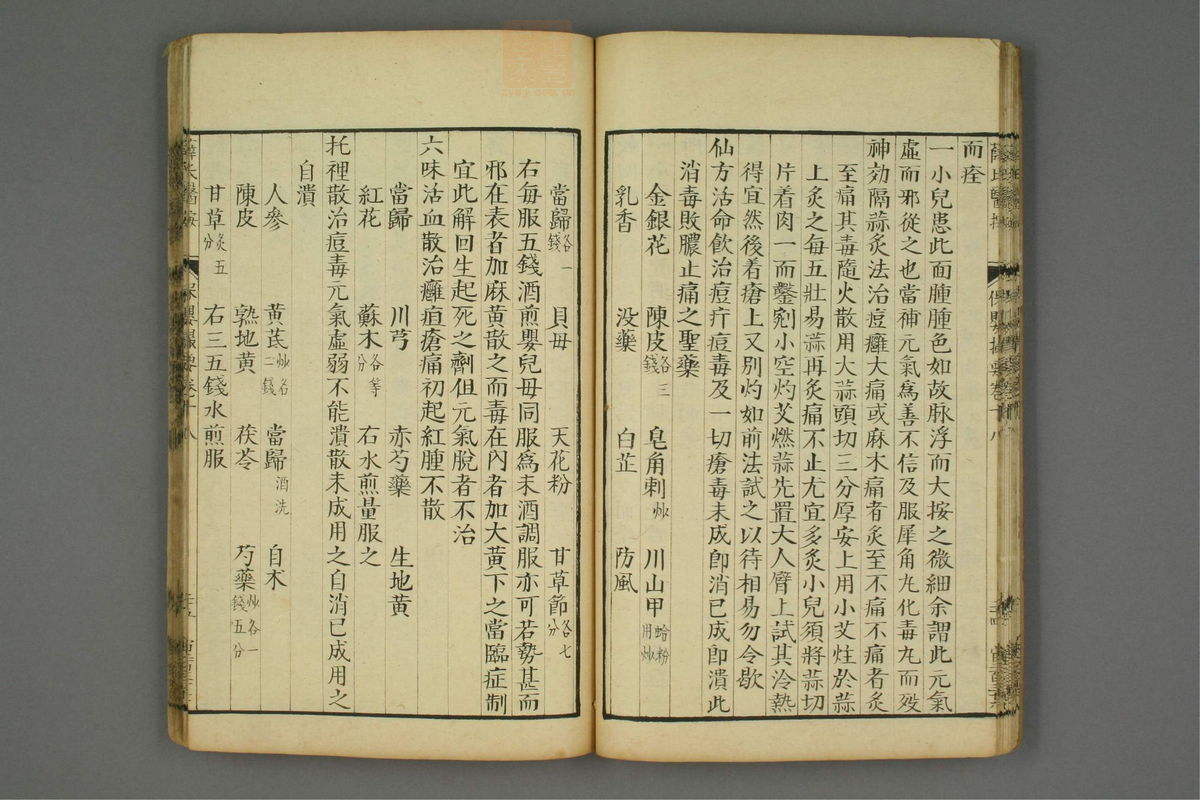 而痊
一小兒患此面腫腫色如故脉浮而大按之微細余謂此元氣
虛而邪從之也當補元氣爲善不信及服犀角丸化毒丸而歿
神効隔蒜灸法治痘癰大痛或麻木痛者灸至不痛不痛者灸
至痛其毒隨火散用大蒜頭切三分厚安上用小艾炷於蒜
上灸之每五壯易蒜再灸痛不止尤宜多灸小兒須將蒜切
片着肉一面鑿剜小空灼艾燃蒜先置大人臂上試其冷熱
得宜然後着瘡上又別灼如前法試之以待相易勿令歇
仙方活命飲治痘疔痘毒及一切瘡毒未成卽消已成卽潰此
消毒敗膿止痛之聖藥
金銀花 陳皮各三錢 皂角刺炒 川山甲蛤粉用炒
乳香 没藥 白芷 防風
當歸各一錢 貝母 天花粉 甘草節各七分
右每服五錢酒煎嬰兒母同服爲末酒調服亦可若勢甚而
邪在表者加麻黃散之而毒在內者加大黃下之當臨症制
宜此解回生起死之劑但元氣脫者不治
六味活血散治癰疽瘡痛初起紅腫不散
當歸 川芎 赤芍藥 生地黄
紅花 蘇木各等分 右水煎量服之
托裡散治痘毒元氣虛弱不能潰散未成用之自消已成用之
自潰
人參 黃芪炒各二錢 當歸酒洗 白朮
陳皮 熟地黃 茯苓 芍藥炒各一錢五分
甘草炙五分 右三五錢水煎服
薛氏醫按
保嬰撮要卷十八